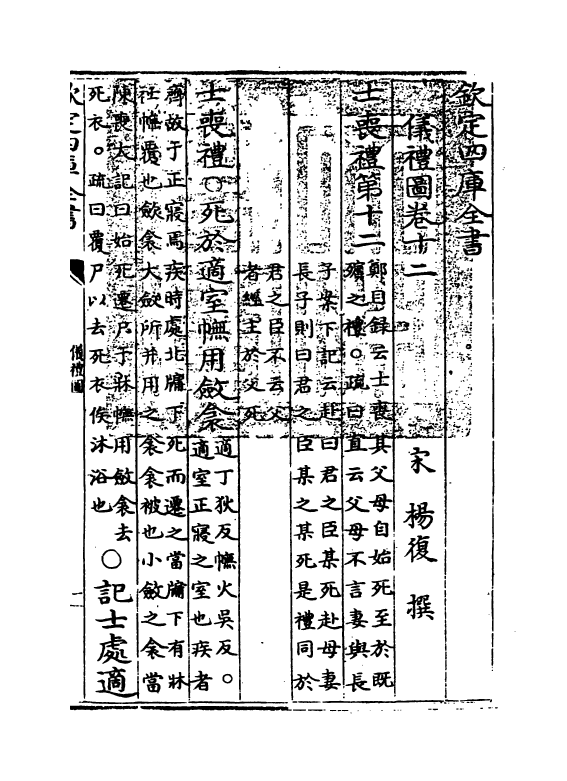 欽定四庫全書
儀禮圖卷十二　宋　楊復　撰
士喪禮第十二
鄭目録云士喪其父母自始死至於既
殯之禮。疏曰直云父母不言妻與長
子案下記云赴曰君之臣某死赴母妻
長子則曰君之臣某之某死是禮同於
君之臣不云父
者經主於父死
士喪禮○死於適室幠用斂衾
適丁狄反幠火吳反。
適室正寢之室也疾者
齊故于正寢焉疾時處北牖下死而遷之當牖下有牀
衽幠覆也斂衾大斂所并用之衾衾被也小斂之衾當
陳喪大記曰始死遷尸于牀幠用斂衾去
死衣。疏曰覆尸以去死衣俟沐浴也
○記士處適
欽定四庫全書
儀禮圖